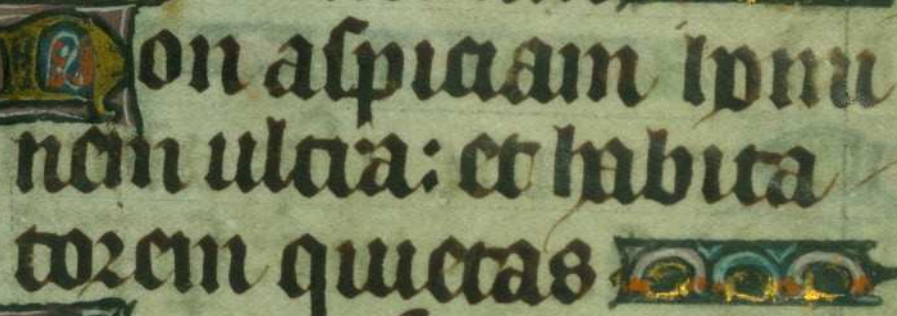 Non aſpiciam homi
nem ultra: et habita
torem quietas